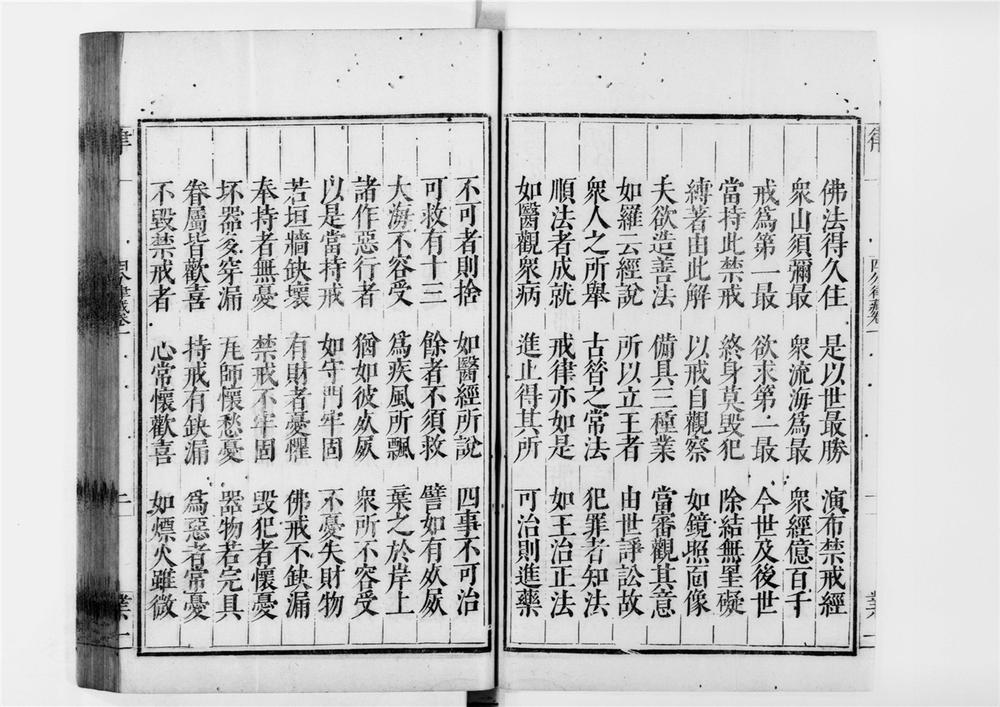 佛法得久住 是以世最勝 演布禁戒經
衆山須彌最 衆流海爲最 衆經億百千
戒爲第一最 欲求第一最 今世及後世
當持此禁戒 終身莫毀犯 除結無罣礙
縛著由此解 以戒自觀察 如鏡照面像
夫欲造善法 備具三種業 當審觀其意
如羅云經說 所以立王者 由世諍訟故
衆人之所舉 古昔之常法 犯罪者知法
順法者成就 戒律亦如是 如王治正法
如醫觀衆病 進止得其所 可治則進藥
不可者則捨 如醫經所說 四事不可治
可救有十三 餘者不須救 譬如有死屍
大海不容受 爲疾風所飄 棄之於岸上
諸作惡行者 猶如彼死屍 衆所不容受
以是當持戒 如守門牢固 不憂失財物
若垣牆缺壞 有財者憂懼 佛戒不缺漏
奉持者無憂 禁戒不牢固 毀犯者懷憂
坏器多穿漏 瓦師懷愁憂 器物若完具
眷屬皆歡喜 持戒有缺漏 爲惡者常憂
不毀禁戒者 心常懷歡喜 如煙火雖微
律 一 四分律藏卷一 二 業一